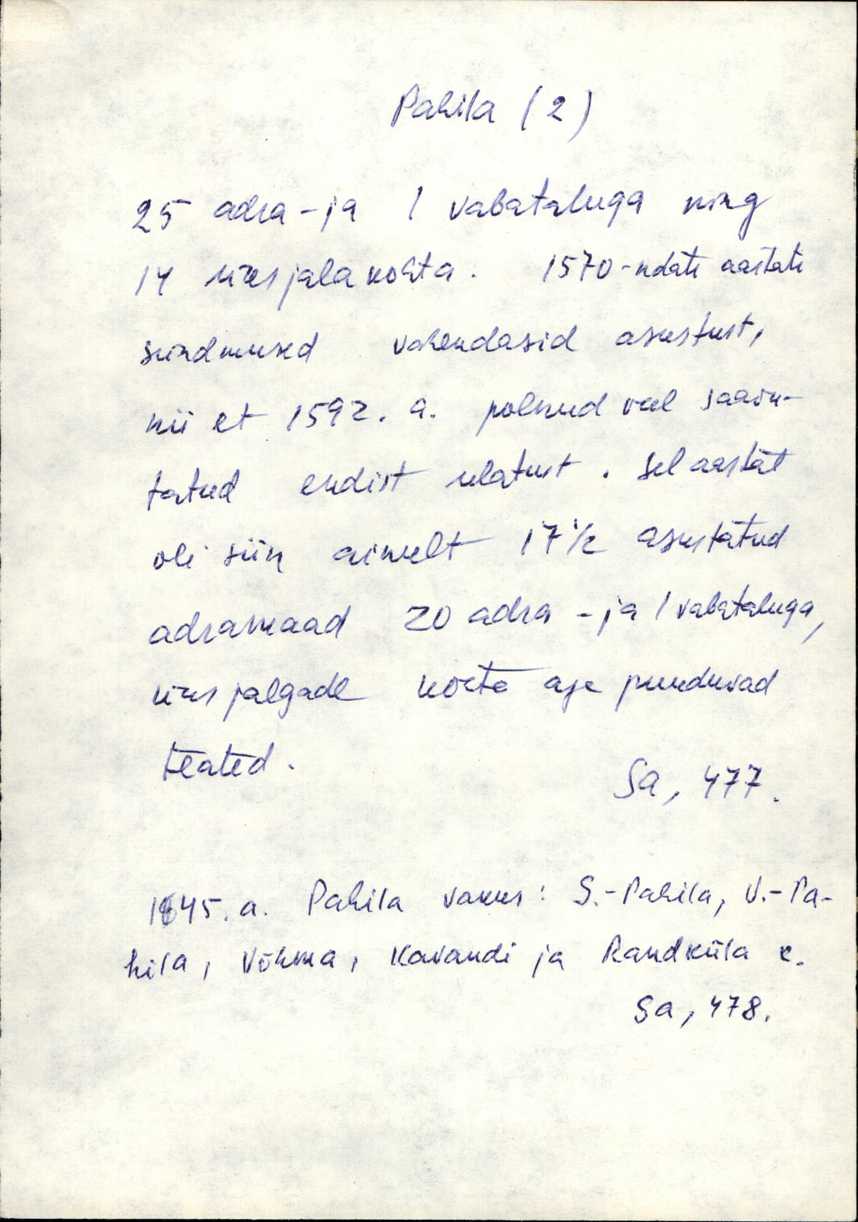 Pahila (2)
25 adra-ja 1 vabataluga ning
14 üksjalakohta. 1570-ndate aastate
sündmused vähendasid asustust,
nii et 1592. a. polnud veel saavu-
tatud endist ulatust. Sel aastat
oli siin aimult 17 1/2 asustatud
adramaad 20 adra-ja 1 vabataluga,
üksjalgade kohta aga puuduvad
teated.
Sa, 477.
1645. a. Pahila vakus: S.-Pahila, V.-Pa-
hila, Võhma, Kavandi ja Randküla k.
Sa, 478.